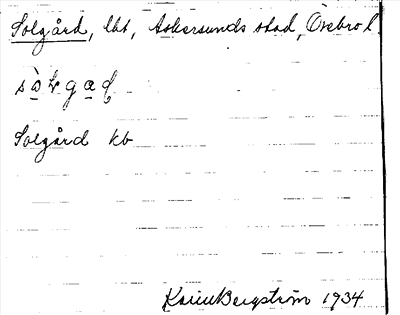 Solgård, lht, Askersunds stad, Örebro l.
Solgård kb
Karin Bergström 1934